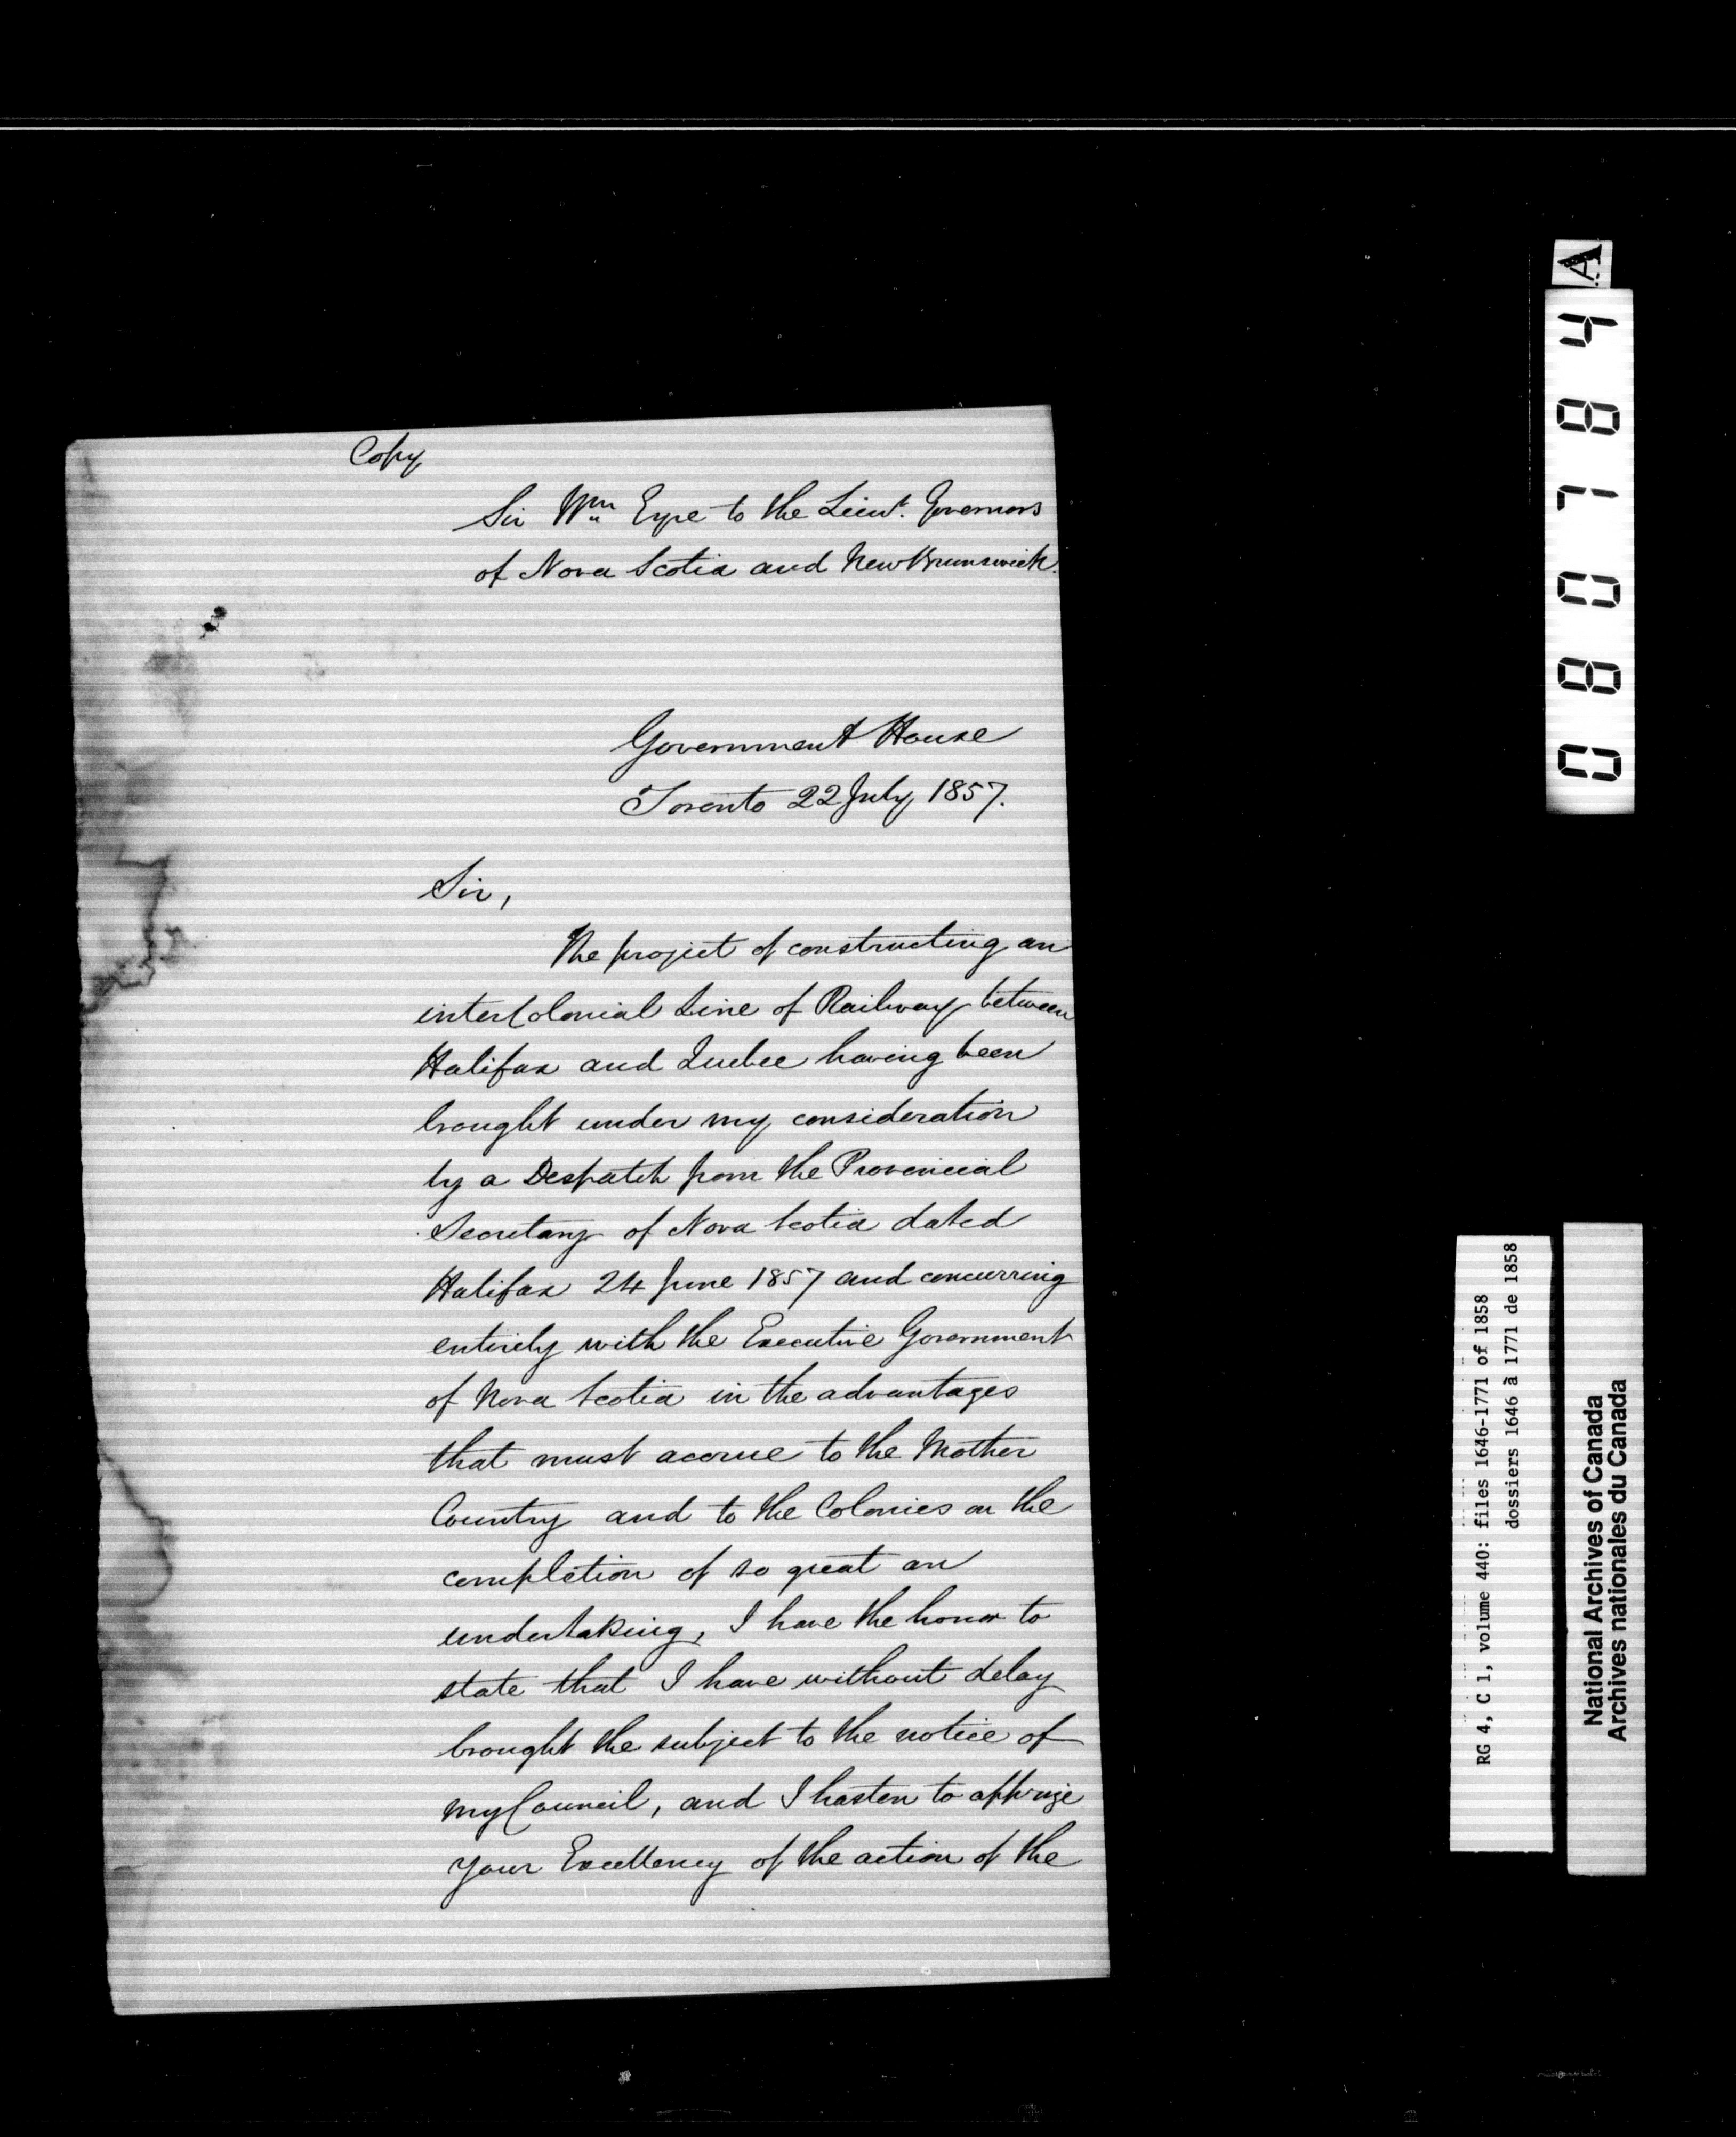 Copy
Sir Wm Eyre to the Lieut. Governors
of Nova Scotia and New Brunswick.
Government House
Toronto 22 July 1857.
Sir,
The project of constructing an
interColonial Line of Railway between
Halifax and Quebec having been
brought under my consideration
by a Despatch from the Provincial
Secretary of Nova Scotia dated
Halifax 24 June 1857 and concurring
entirely with the Executive Government
of Nova Scotia in the advantages
that must accrue to the Mother
Country and to the Colonies on the
completion of so great an
undertaking, I have the honor to
state that I have without delay
brought the subject to the notice of
my Council, and I hasten to apprize
Your Excellency of the action of the
080784
A
RG 4, C 1, volume 440: files 1646-1771 of 1858
dossiers 1646 à 1771 de 1858
National Archives of Canada
Archives nationales du Canada